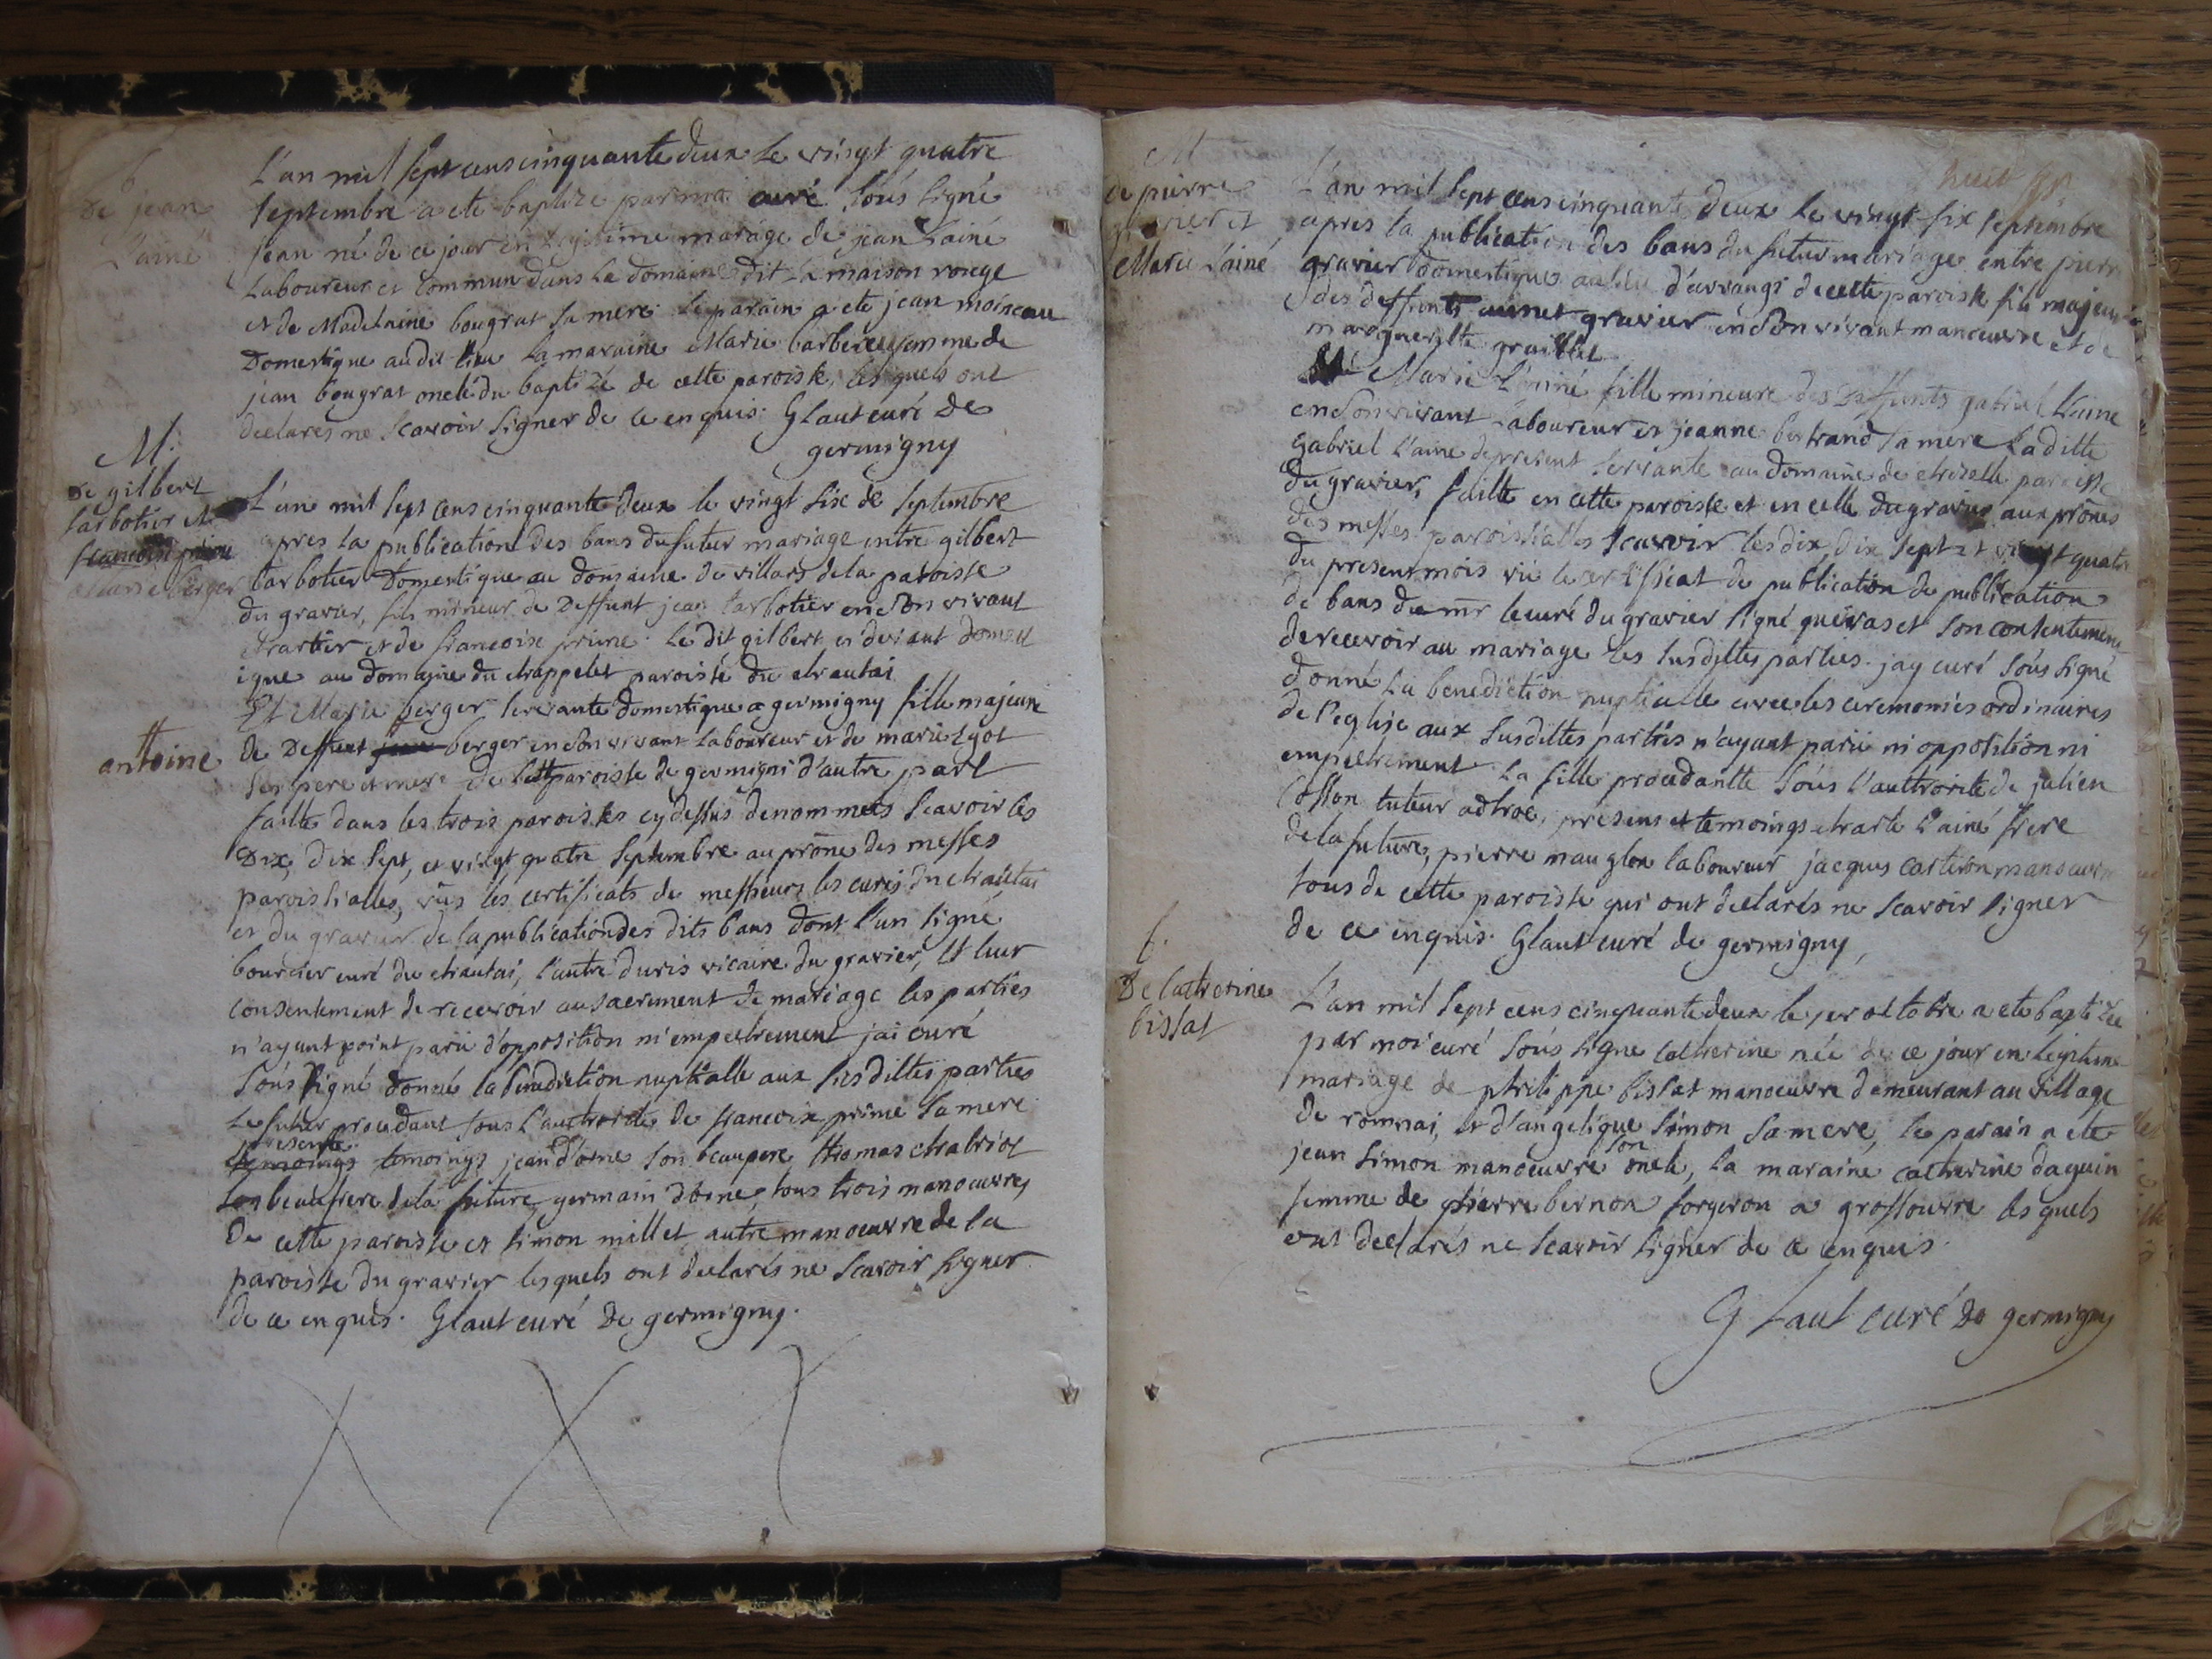 B
De jean
L'ainé
L'an mil sept cens cinquante deux le vingt quatre
septembre a eté baptizé par moi curé sous signé
jean né de ce jour en legitime mariage de jean Lainé
Laboureur et commun dans le domaine dit la maison rouge
et de Madelaine bougrat sa mere. le parain a ete jean moineau
Domestique au dit lieu la maraine Marie barbere femme de
jean bougrat oncle du baptizé de cette paroisse, lesquels ont
declarés ne scavoir signer de ce enquis. Glaut curé De
germigny
M.
De gilbert
barbotier et
francoise prune
Marie berger
L'an mil sept cens cinquante deux le vingt six de septembre
apres la publication des bans du futur mariage entre gilbert
barbotier Domestique au domaine de villars de la paroisse
du gravier, fils mineur de Deffunt jean barbotier en son vivant
chartier et de francoise prune. Le dit gilbert cy devant domest
ique au domaine du chappelet paroisse du chautai
Et Marie berger servante domestique a germigny fille majeure
antoine
de Deffunt berger en son vivant laboureur et de marie lyot
ses pere et mere de cette paroisse de germigni d'autre part
faitte dans les trois paroisses cy dessus denommées scavoir les
Dix, dix sept, et vingt quatre septembre au prône des messes
paroissialles, vûs les certificats de messieurs les curés du chautai
et du gravier de la publication des dits bans dont l'un signé
bourcier curé du chautai, l'autre duris vicaire du gravier, et leur
consentement de recevoir au sacrement de mariage les parties
n'ayant point parû d'opposition ni empechement jai curé
sous signé donné la benediction nuptialle aux susdittes parties
Le futur procedant sous l'authorité de francoise prune sa mere
presents
temoings temoings jean dorne son beaupere thomas chabriot
son beaufrere de la future, germain dorne, tous trois manoeuvres
De cette paroisse et simon millet autre manoeuvre de la
paroisse du gravier lesquels ont declarés ne scavoir signer
de ce enquis. Glaut curé De germigny.
huit
M
de pierre
gravier et
Marie L'ainé
L'an mil sept cens cinquante deux le vingt six septembre
apres la publication des bans du futur mariage entre pierre
gravier domestique au lieu d'arrangi de cette paroisse fils majeur
des deffunts aunet gravier en son vivant manoeuvre et de
marguerite graillot
Marie L'ainé fille mineure des Deffunts gabriel L'aine
en son vivant Laboureur et jeanne bertrand sa mere Laditte
gabriel L'aine de present servante au domaine de paroisse
du gravier, faitte en cette paroisse et en celle du gravier aux prônes
des messes paroissialles scavoir les dix, dix sept et vingt quatre
du present mois vû le certifficat de publication de publication
de bans de mr le curé du gravier signé queuras et son consentement
de recevoir au mariage les susdittes parties. jay curé sous signé
donné la benediction nuptialle avec les ceremonies ordinaires
de l'eglise aux susdittes parties n'ayant parû ni opposition ni
empechement la fille procedantte sous l'authorité de julien
Cosson tuteur adhoc, presens et temoings charle L'ainé frere
de la future, pierre mauglon laboureur jacques cartiron manoeuvre
tous de cette paroisse qui ont declarés ne scavoir signer
de ce enquis. Glaut curé de germigny,
b.
De Catherine
bissat
L'an mil sept cens cinquante deux le 1er octobre a ete baptizée
par moi curé sous signe Catherine née de ce jour en legitime
mariage de philippe bissat manoeuvre demeurant au village
de romnai, et d'angelique simon sa mere, le parain a ete
jean simon manoeuvre son oncle, la maraine catherine daguin
femme de pierre bernon forgeron a grossouvre les quels
ont declarés ne scavoir signer de ce enquis.
Glaut curé De germigny